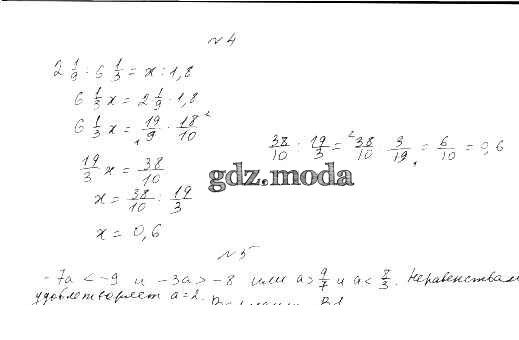 № 4
2 1/9 : 6 1/3 = x : 1,8
6 1/3 x = 2 1/9 · 1,8
6 1/3 x = 19/9 · 18/10 2
1
19/3 x = 38/10
38/10 : 19/3 = 2 38/10 · 3/19 1 = 6/10 = 0,6
x = 38/10 : 19/3
gdz.moda
x = 0,6
№ 5
-7a < -9 и -3a > -8 или a > 9/7 и a < 8/3. Неравенствам
удовлетворяет a = 2.